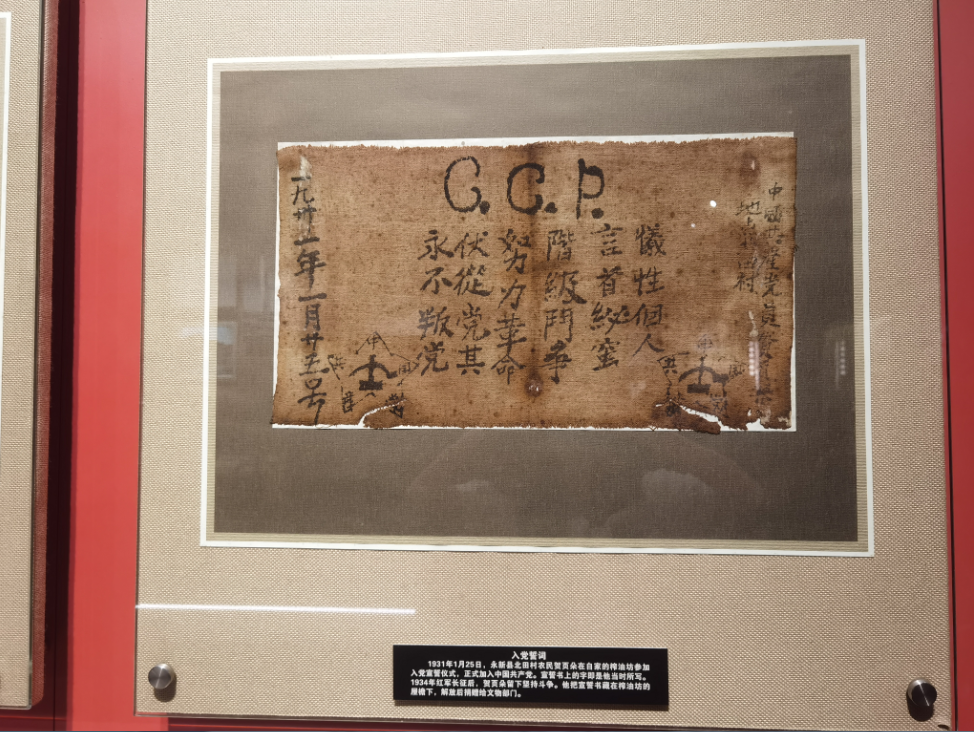 C.C.P.
中國共產党員
地點
村
犧性個人
言首秘蜜
階級鬥爭
努力革命
伏從党其
永不叛党
一九卅一年一月廿五号
中
國
共
中
國
共
入党誓词
1931年1月25日，永新县北田村农民贺页朵在自家的榨油坊参加
入党宣誓仪式，正式加入中国共产党。宣誓书上的字即是他当时所写。
1934年红军长征后，贺页朵留下坚持斗争。他把宣誓书藏在榨油坊的
屋檐下，解放后捐赠给文物部门。